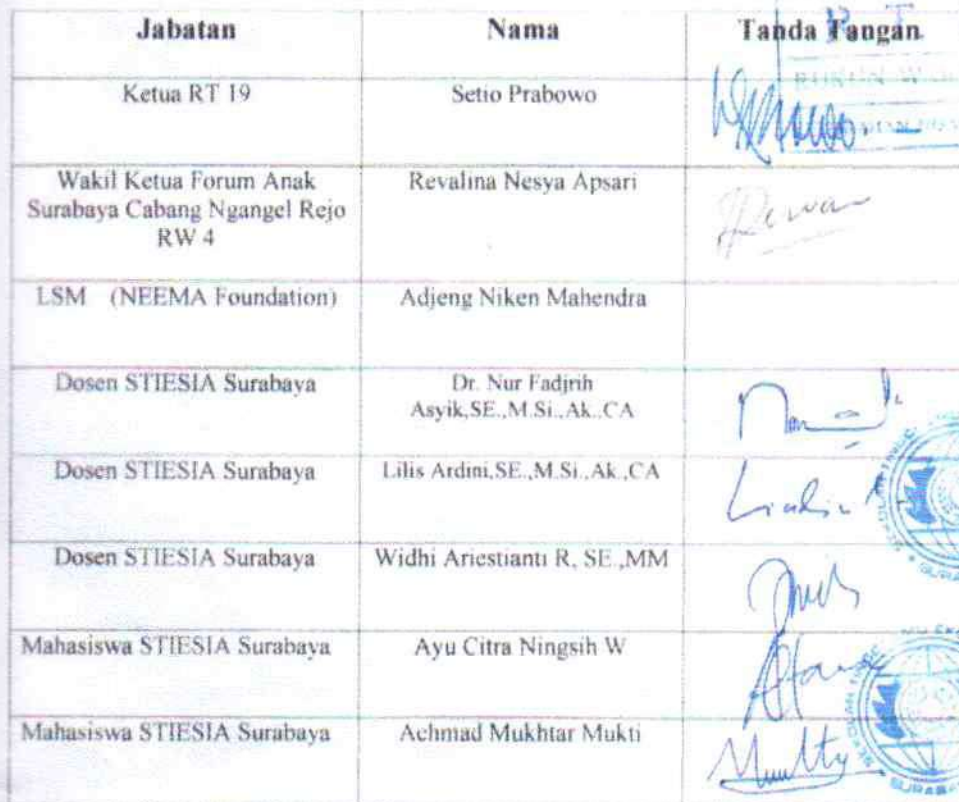 Jabatan Nama Tanda Tangan
Ketua RT 19 Setio Prabowo
Wakil Ketua Forum Anak Revalina Nesya Apsari
Surabaya Cabang Ngangel Rejo
RW 4
LSM (NEEMA Foundation) Adjeng Niken Mahendra
Dosen STIESIA Surabaya Dr. Nur Fadjrih
Asyik,SE.,M.Si.,Ak.,CA
Dosen STIESIA Surabaya Lilis Ardini,SE.,M.Si.,Ak.,CA
Dosen STIESIA Surabaya Widhi Ariestianti R, SE.,MM
Mahasiswa STIESIA Surabaya Ayu Citra Ningsih W
Mahasiswa STIESIA Surabaya Achmad Mukhtar Mukti